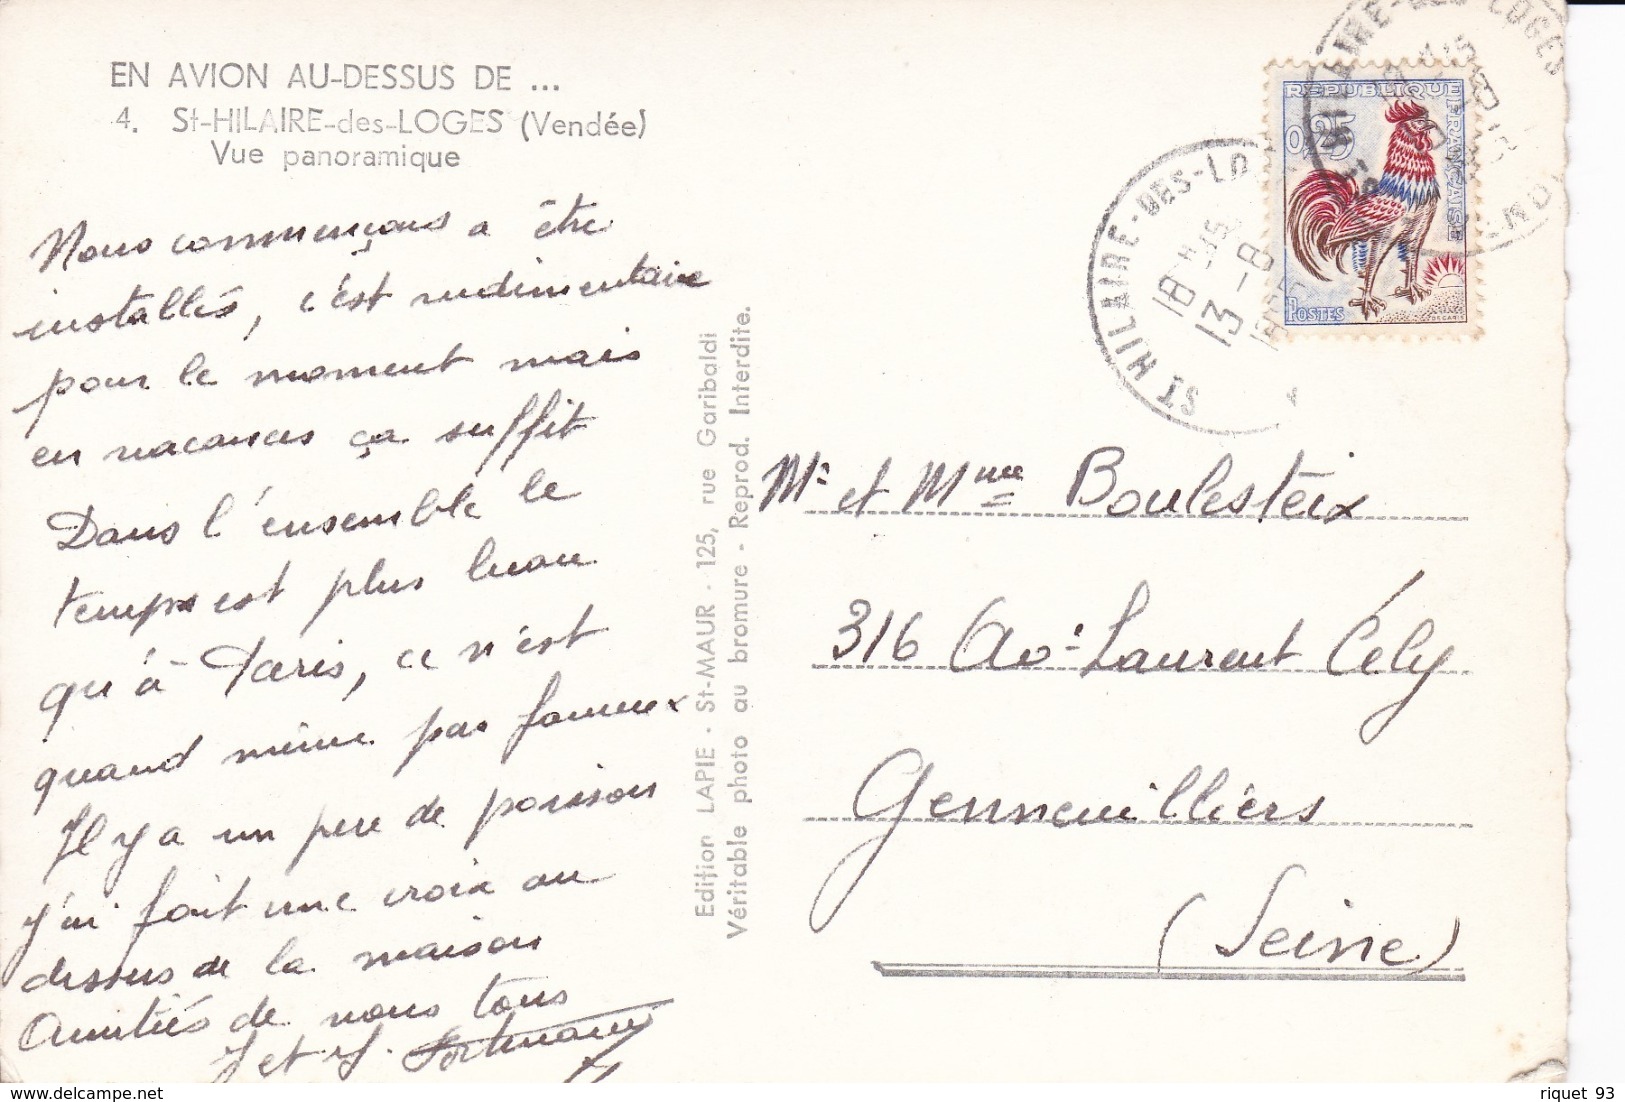 EN AVION AU-DESSUS DE ...
4. St-HILAIRE-des-LOGES (Vendée)
Vue panoramique
Nous commençons a être
installés, c'est rudimentaire
pour le moment mais
en vacances ça suffit
Dans l'ensemble le
temps est plus beau
qu'à Paris, ce n'est
quand même pas fameux
Il y a un peu de poisson
j'ai fait une croix au
dessus de la maison
Amitiés de nous tous
J et J.
Edition LAPIE - St-MAUR - 125, rue Garibaldi
Véritable photo au bromure - Reprod. Interdite.
ST HILAIRE-DES-LO
18 H 15
13-8
REPUBLIQUE FRANÇAISE
0,25
POSTES
DECARIS
HILAIRE-DES-LOGES
Mr et Mme Boulesteix
316 Av. Laurent Cély
Gennevilliers
(Seine)
riquet 93